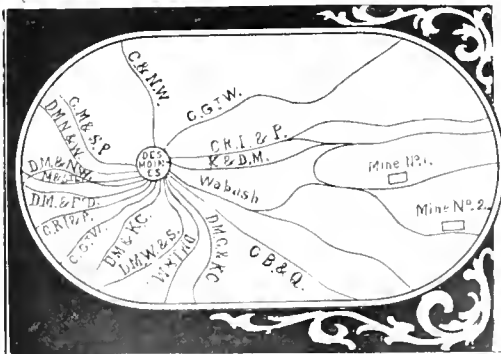 C.&N.W.
C.G.&W.
C.M.&S.P.
D.M.N.&W.
C.R.I.&P.
K.&D.M.
DES
MOIN
ES
D.M.&N.W.
Wabash
Mine No. 1.
D.M.&F.D.
Mine No. 2.
C.R.I.&P.
C.G.W.
D.M.&K.C.
D.M.W.&S.
D.M.C.&K.C
C.B.&Q.